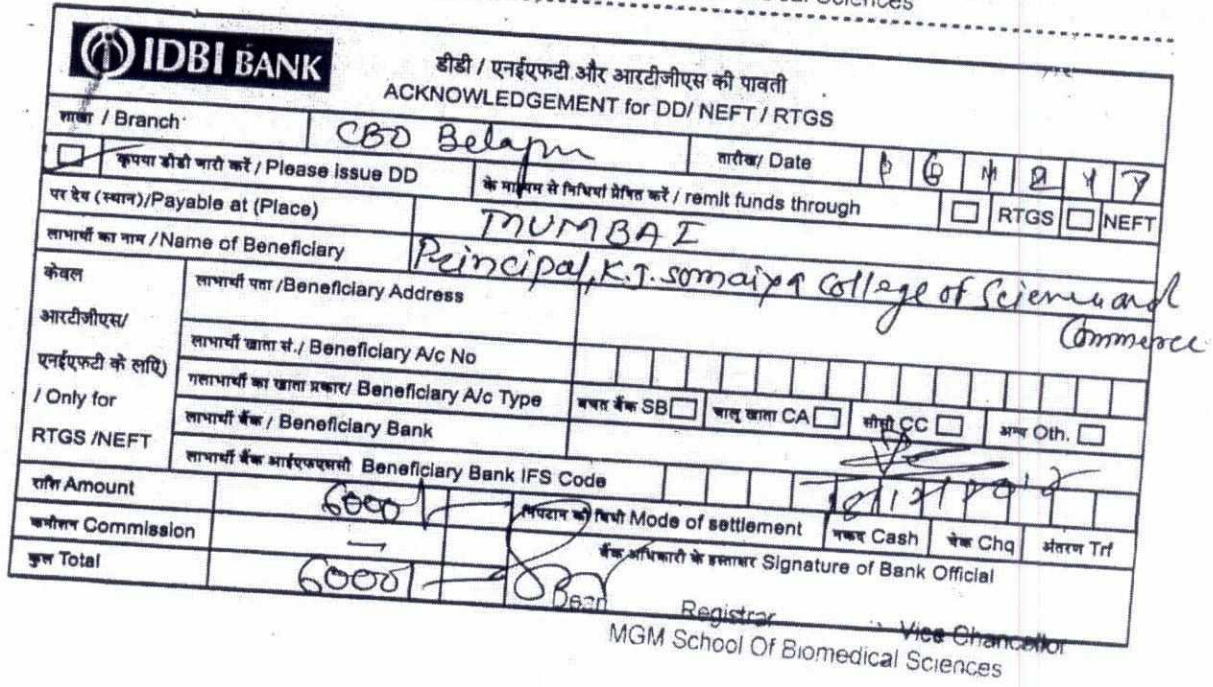 IDBI BANK
डीडी / एनईएफटी और आरटीजीएस की पावती
ACKNOWLEDGEMENT for DD/ NEFT / RTGS
शाखा / Branch CBD Belapur तारीख/ Date
कृपया डीडी जारी करें / Please issue DD के माध्यम से निधियां प्रेषित करें / remit funds through RTGS NEFT
पर देय (स्थान)/Payable at (Place) MUMBAI
लाभार्थी का नाम /Name of Beneficiary Principal, K.J. somaiya College of Science and Commerce
केवल आरटीजीएस/ एनईएफटी के लिए) / Only for RTGS /NEFT
लाभार्थी पता /Beneficiary Address
लाभार्थी खाता सं./ Beneficiary A/c No
लाभार्थी का खाता प्रकार/ Beneficiary A/c Type बचत बैंक SB चालू खाता CA सीसी CC अन्य Oth.
लाभार्थी बैंक / Beneficiary Bank
लाभार्थी बैंक आईएफएससी Beneficiary Bank IFS Code
राशि Amount 6000/- निपटान की विधी Mode of settlement नकद Cash चेक Chq अंतरण Trf
कमीशन Commission — बैंक अधिकारी के हस्ताक्षर Signature of Bank Official
कुल Total 6000/-
Registrar Vice Chancellor
MGM School Of Biomedical Sciences